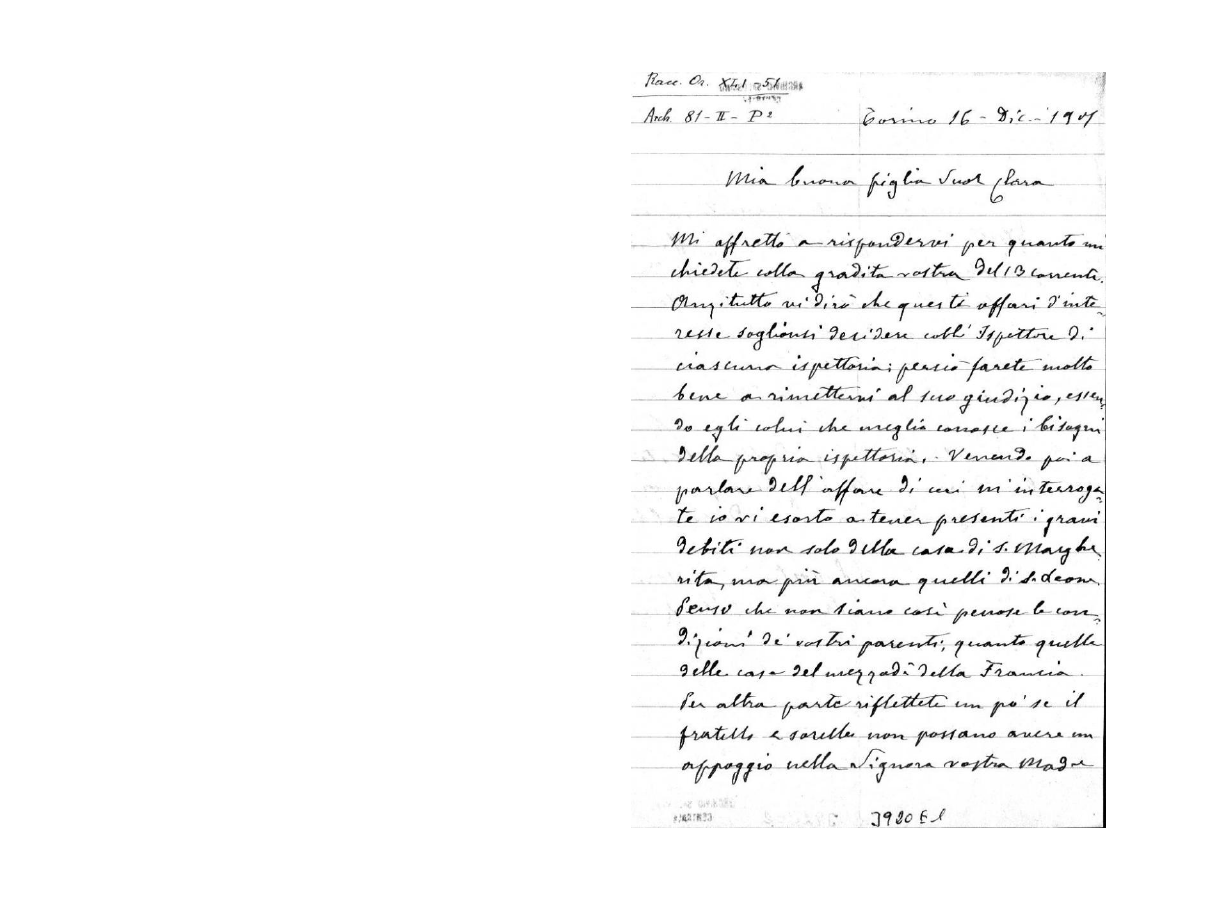 Racc. Or. XLI 51
Arch. 81 - II - P 2
Torino 16 - Dic. - 1901
Mia buona figlia Suor Clara
Mi affretto a rispondervi per quanto mi
chiedete colla gradita vostra del 13 corrente.
Anzitutto vi dirò che questi affari d'inte-
resse sogliansi desidere coll' Ispettore di
ciascuna ispettoria; persiò farete molto
bene a rimettervi al suo giudizio, essen-
do egli colui che meglio conosce i bisogni
della propria ispettoria. - Venendo poi a
parlare dell' affare di cui m'interroga-
te io vi esorto a tener presenti i gravi
debiti non solo della casa di S. Marghe
rita, ma più ancora quelli di S. Leone.
Penso che non siano così penose le con-
dizioni de' vostri parenti, quanto quelle
delle case del mezzodì della Francia.
Per altra parte riflettete un po' se il
fratello e sorelle non possano avere un
appoggio nella Signora vostra Madre
CENTRALE
3920 E1